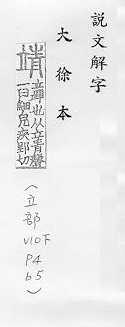 說文解字
大徐本
靖
立竫也从立青聲
一曰細皃疾郢切
(立部
V10下
P4
b5)